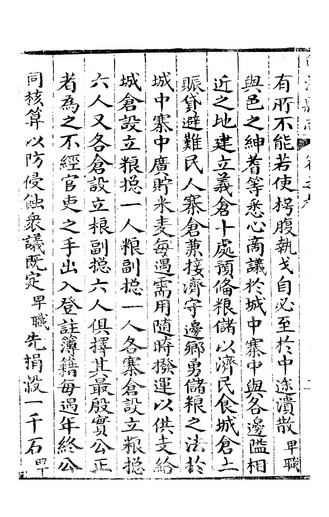 有所不能若使枵腹執戈自必至於中途潰散卑職
與邑之紳耆等悉心商議於城中寨中與各邊隘相
近之地建立義倉十處預備粮儲以濟民食城倉上
賑貸避難民人寨倉兼接濟守邊鄉勇儲粮之法於
城中寨中廣貯米麦每遇需用隨時撥運以供支給
城倉設立粮揔一人粮副揔一人各寨倉設立粮揔
六人又各倉設立粮副揔六人俱擇其最殷實公正
者為之不經官吏之手出入登註簿籍每過年終公
同核算以防侵蝕衆議既定卑職先捐穀一千石卑